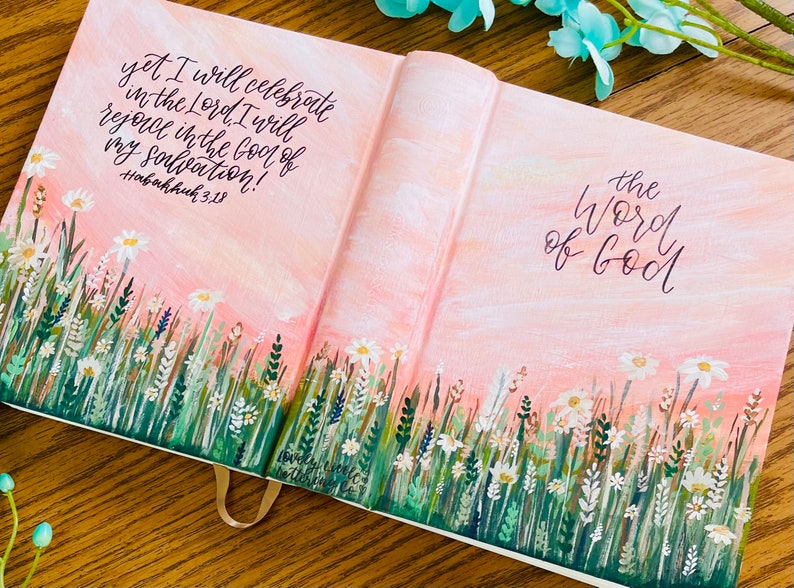 yet I will celebrate
in the Lord, I will
rejoice in the God of
my salvation!
Habakkuk 3:18
the
Word
of God
Lettering Co